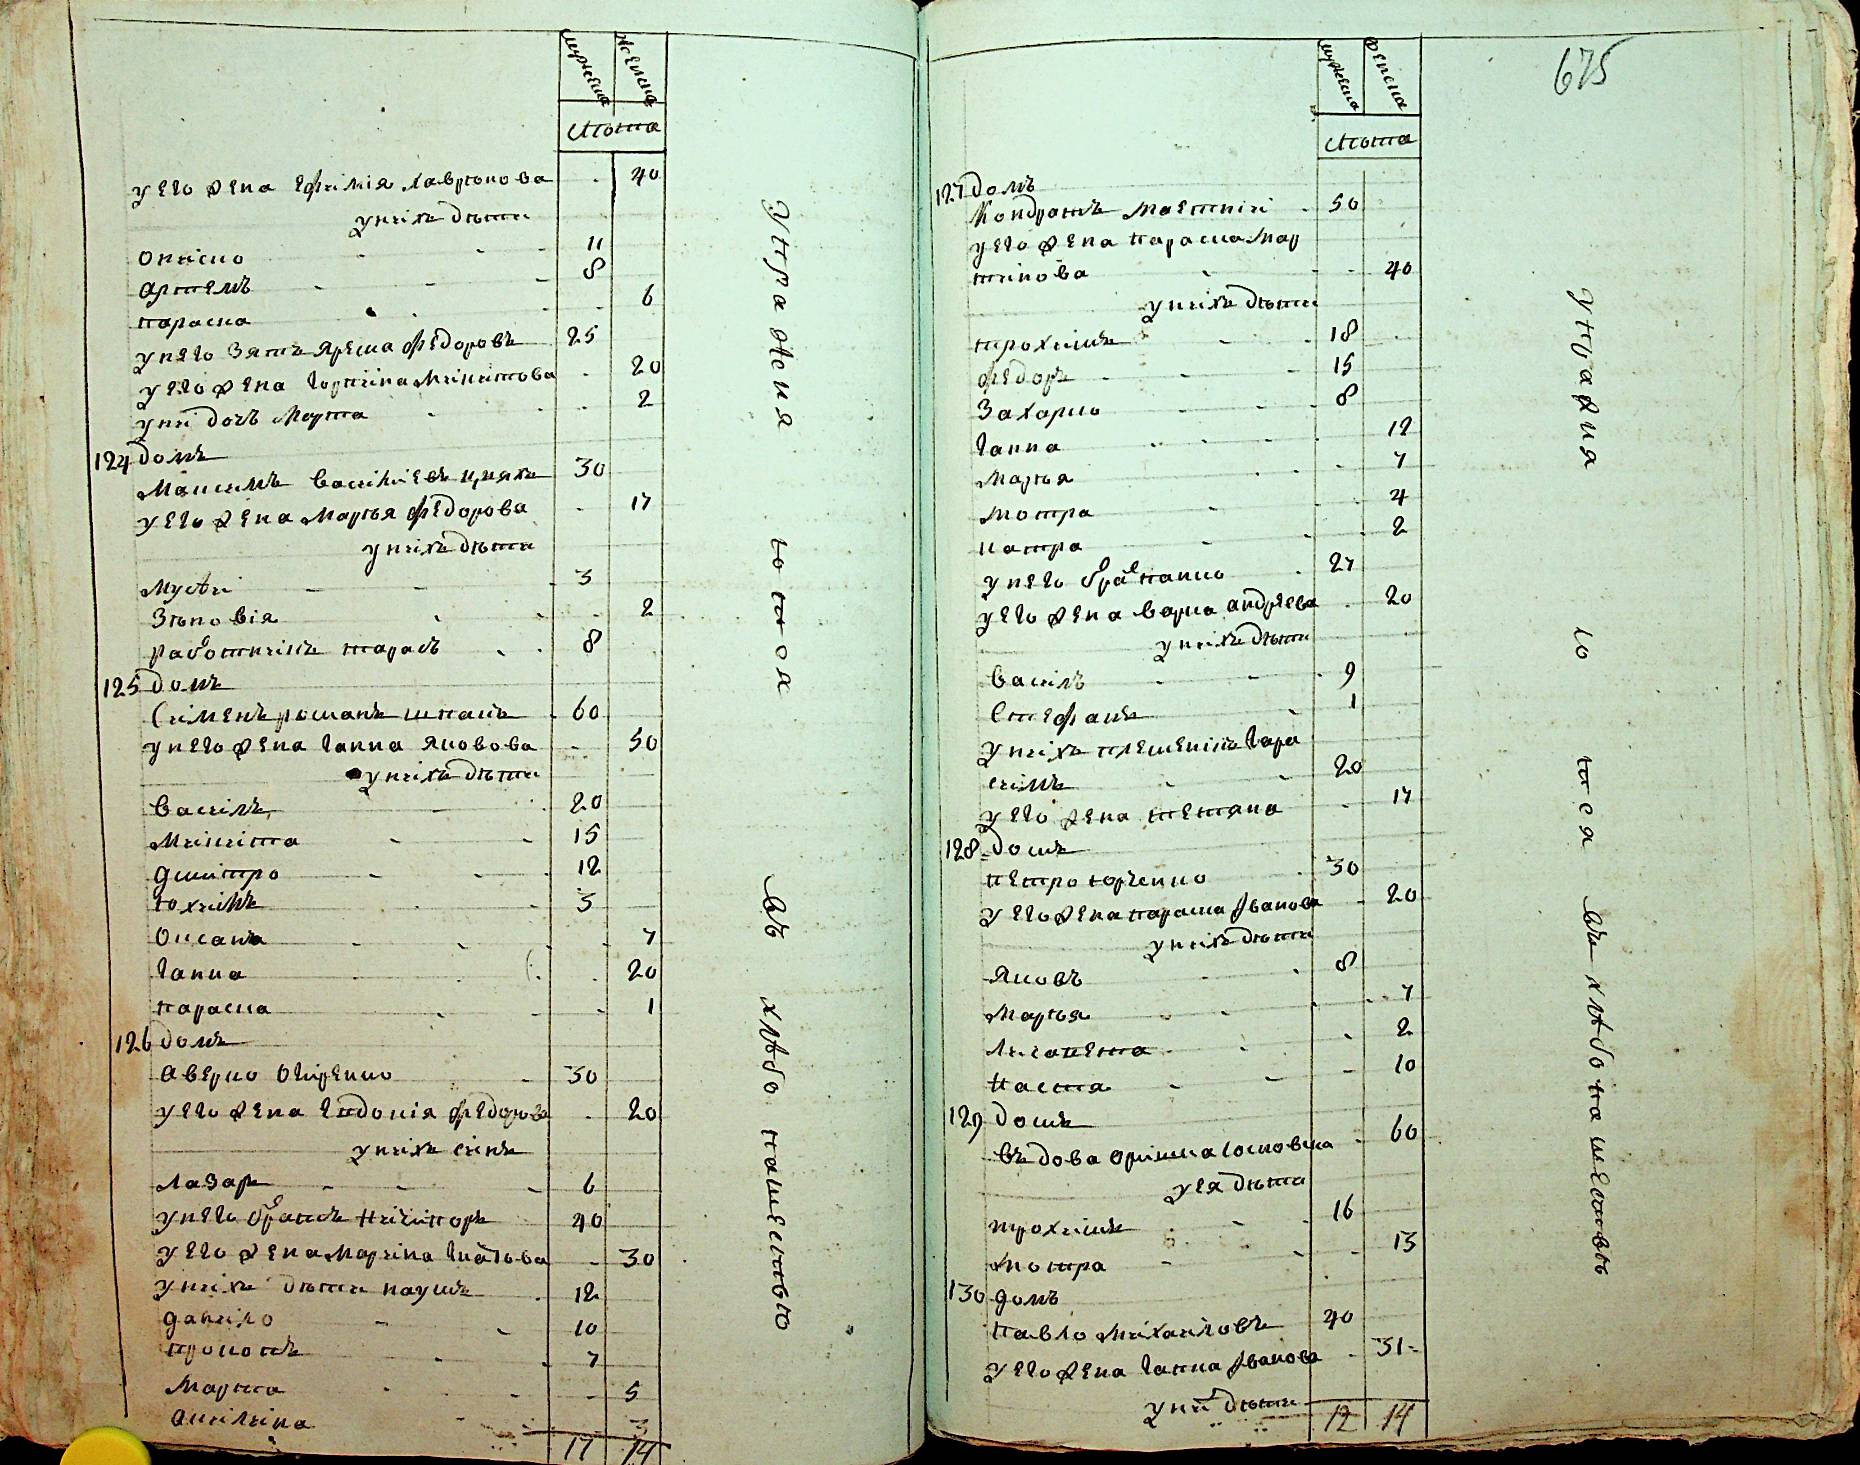 мужеска женска
лѣта
у его жена Ефимія Лаврѣнова 40
у нихъ дѣти
Описко 11
Артемъ 8
Параска 6
у него зять Ярема Федоровъ 25
у его жена Горпина Микитова 20
у ни дочь Марта 2
124 домъ
Максимъ Василиевъ 30
у его жена Марья Федорова 17
у нихъ дѣти
Мусѣи 3
Зѣновія 2
работникъ Тарасъ 8
125 домъ
Сименъ Романъ Шпакъ 60
у него жена Ганна Яковова 50
у нихъ дѣти
Василь 20
Микита 15
Дмитро 12
Юхимъ 3
Оксана 7
Ганна 20
Параска 1
126 домъ
Аверко 50
у его жена Евдокія Федорова 20
у нихъ синъ
Лазаръ 6
у него братъ Ничипоръ 40
у его жена Марина Игнатова 30
у нихъ дѣти Наумъ 12
Данило 10
Прокопъ 7
Марта 5
Акилина 3
17 14
Упражненія
въ хлѣбопашествѣ
675
мужеска женска
лѣта
127 домъ
Кондратъ 50
у его жена Параска Мар
тинова 40
у нихъ дѣти
Трохимъ 18
Федоръ 15
Захарко 8
Ганна 12
Марья 7
Мотра 4
Катра 2
у него братъ Панко 27
у его жена Варка Андреева 20
у нихъ дѣти
Василь 9
Стефанъ 1
у нихъ племеникъ Гара
симъ 20
у его жена Тетяна 17
128 домъ
Петро Юрченко 30
у его жена Параска Иванова 20
у нихъ дѣти
Яковъ 8
Марья 7
Лисавета 2
Настя 10
129 домъ
въдова Оришка 60
у ея дѣти
Трохимъ 16
Мотра 13
130 домъ
Павло Михайловъ 40
у его жена Ганна Иванова 31
у ни дѣти
12 14
Упражня
ются
въ хлѣбопашествѣ